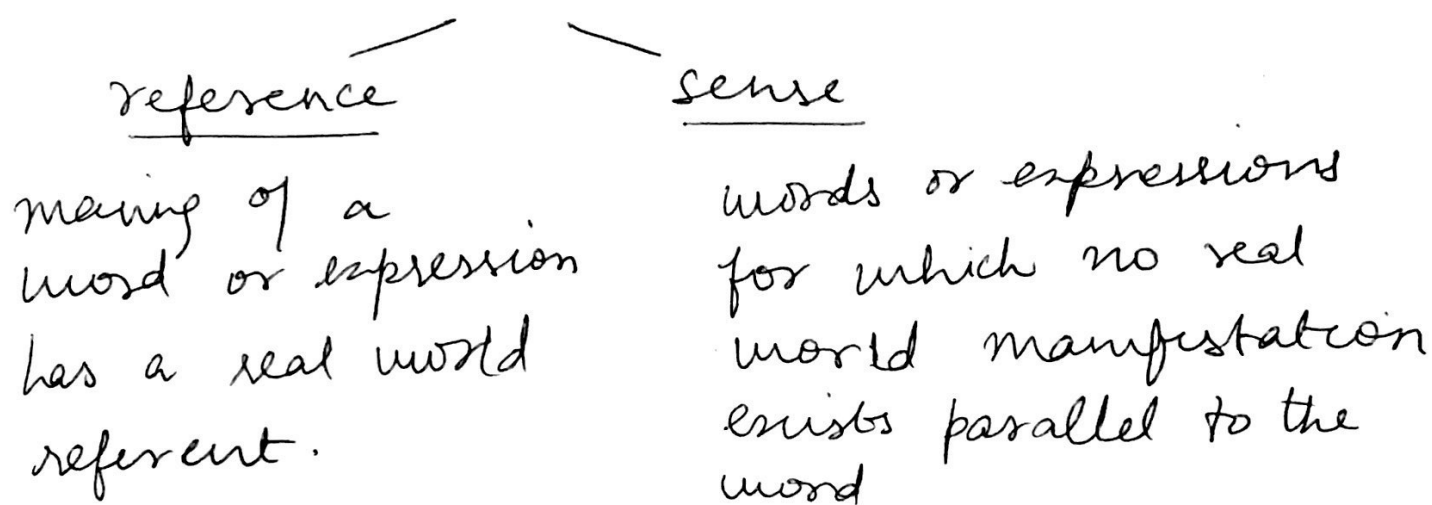 reference
meaning of a
word or expression
has a real world
referent.
sense
words or expressions
for which no real
world manifestation
exists parallel to the
word